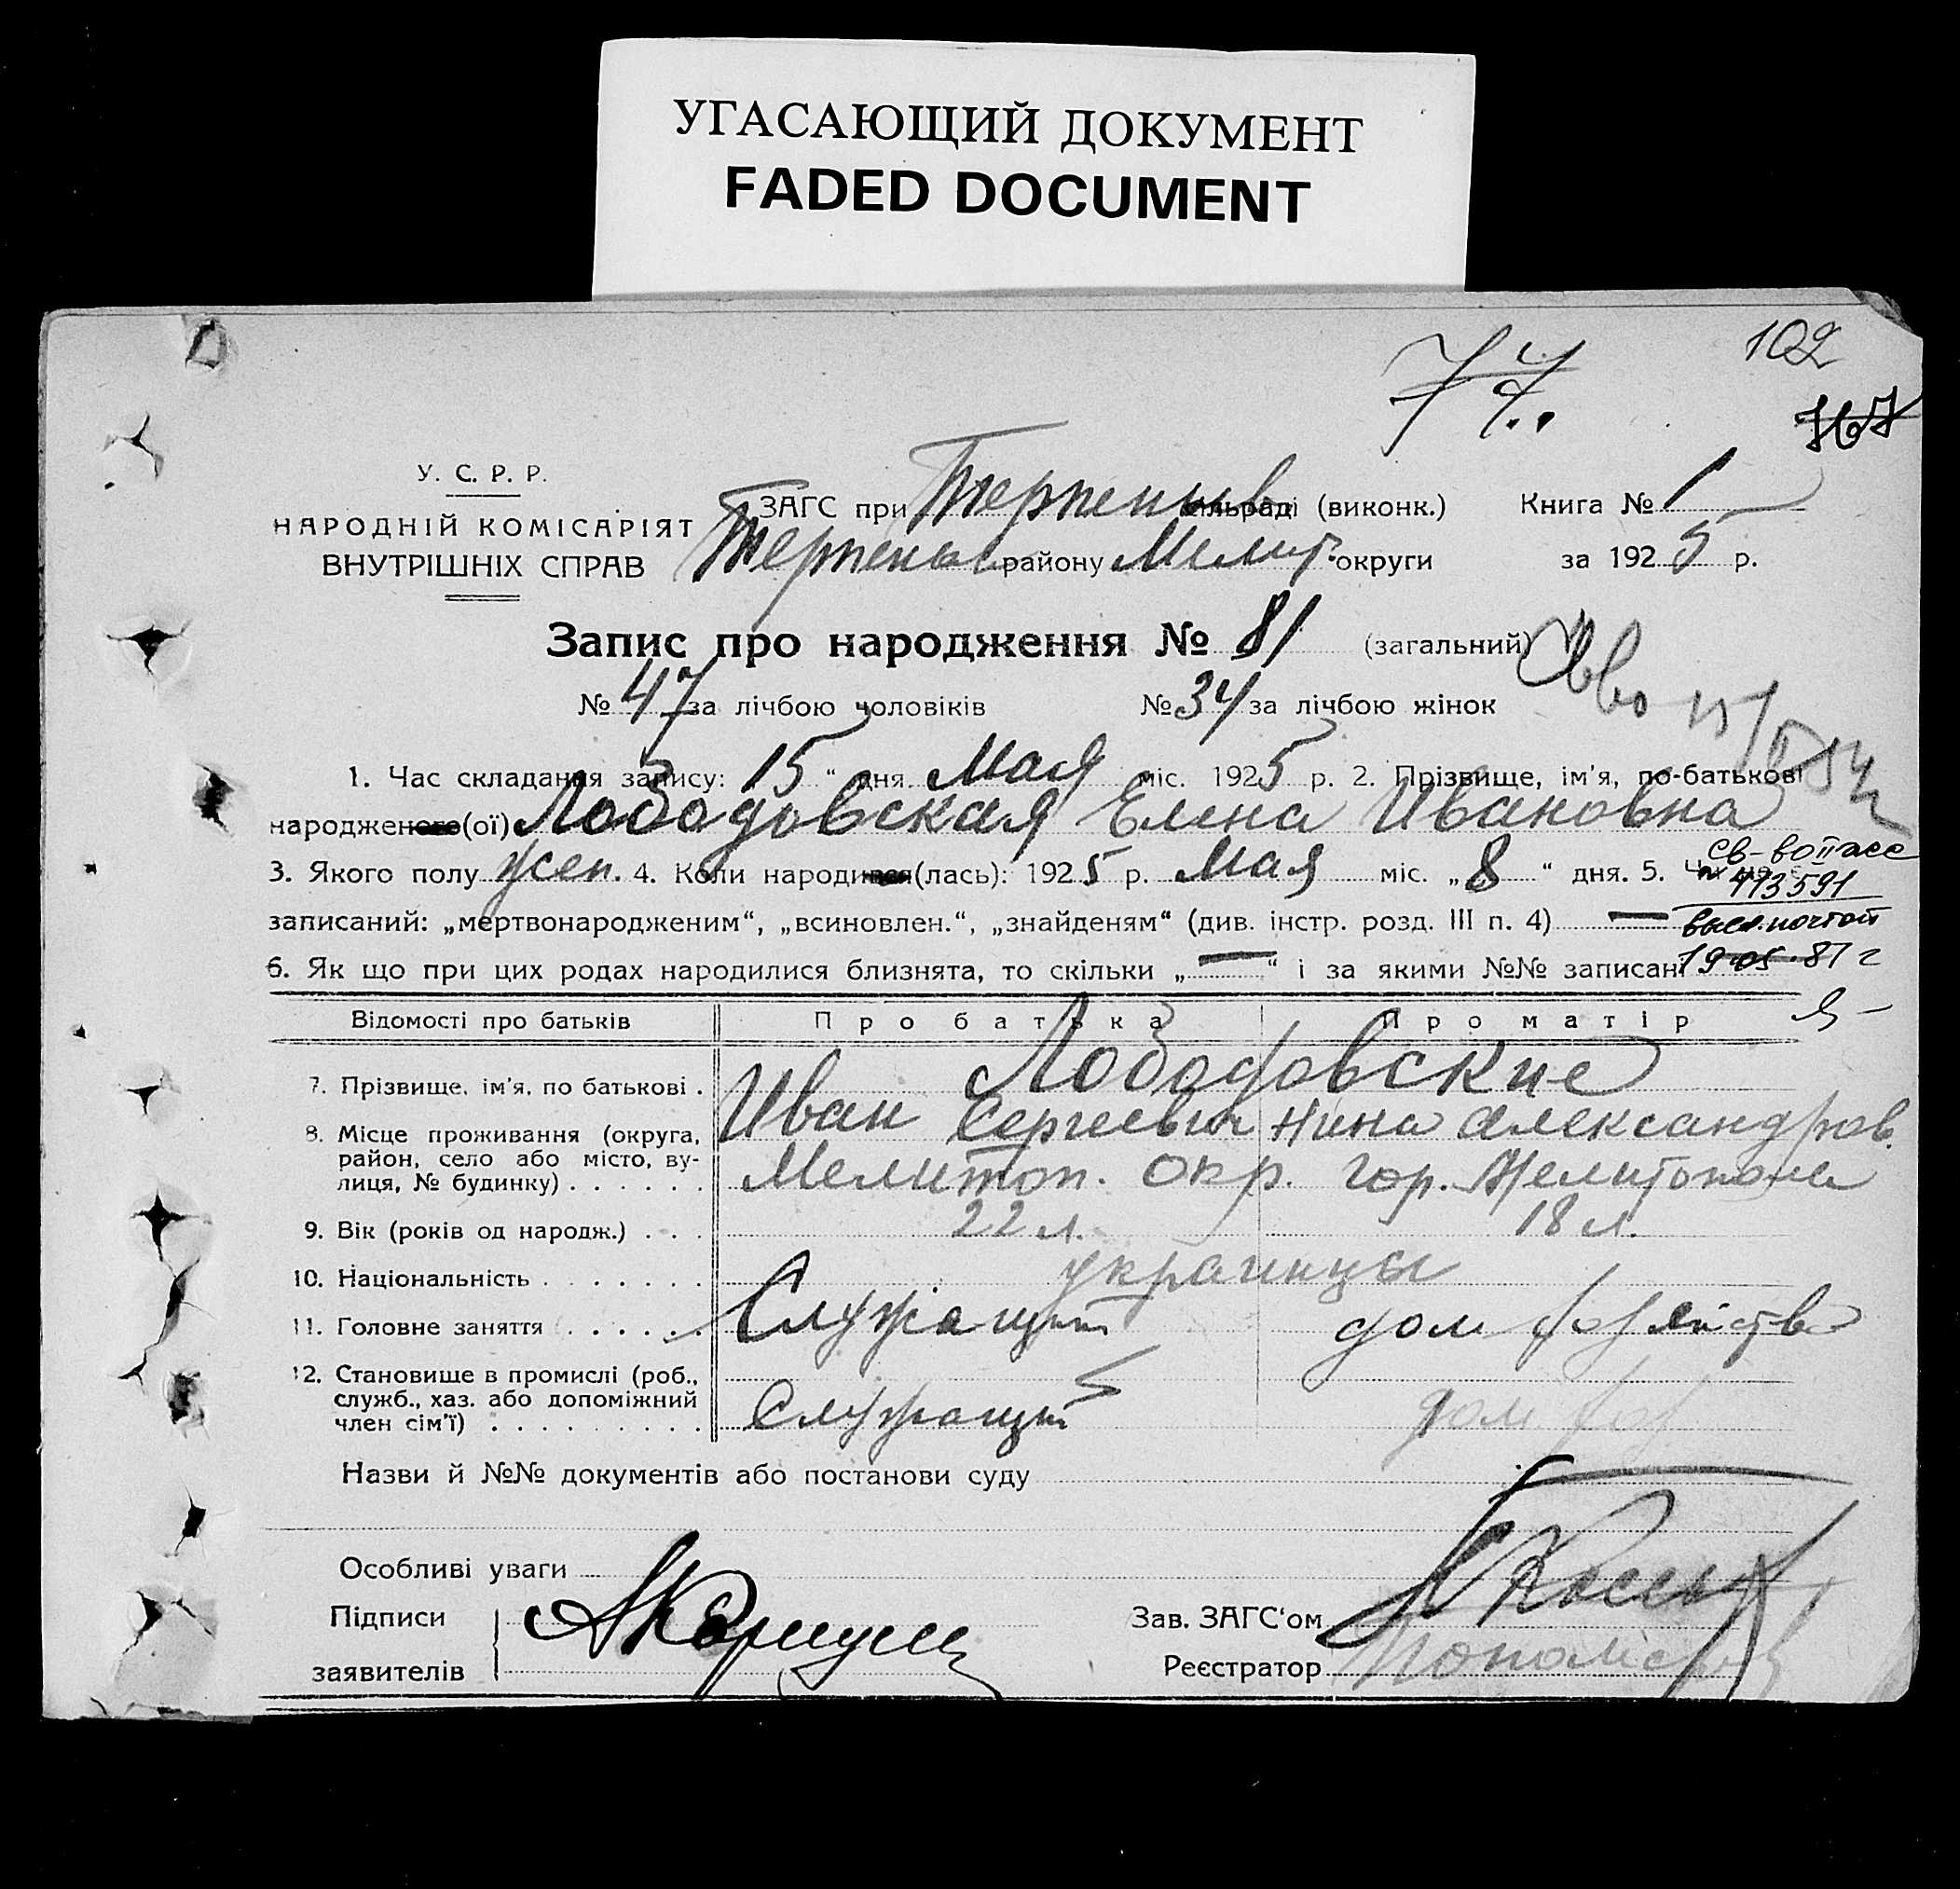 УГАСАЮЩИЙ ДОКУМЕНТ
FADED DOCUMENT
102
У. С. Р. Р.
НАРОДНІЙ КОМІСАРІЯТ
ВНУТРІШНІХ СПРАВ
ЗАГС при Терпеньев сільраді (виконк.)
Терпеньев району Мелит. округи
Книга № 1
за 1925 р.
Запис про народження № 81 (загальний)
№ 47 за лічбою чоловіків № 34 за лічбою жінок
1. Час складання запису: 15 " дня Мая міс. 1925 р. 2. Прізвище, ім'я, по-батькові
народженого(ої) Лободовская Елена Ивановна
3. Якого полу жен. 4. Коли народився(лась): 1925 р. Мая міс. „8" дня. 5.
св-во
413591
высл. почтой
19.05.87 г
записаний: „мертвонародженим", „всиновлен.", „знайденям" (див. інстр. розд. III п. 4) —
6. Як що при цих родах народилися близнята, то скільки „—" і за якими №№ записані
Відомості про батьків Про батька Про матір
Лободовские
7. Прізвище, ім'я, по батькові . Иван Сергеевич Нина Александров.
8. Місце проживання (округа,
район, село або місто, ву-
лиця, № будинку) . . . . . . Мелитоп. окр. гор. Мелитополя
9. Вік (років од народж.) . . . 22 л. 18 л.
10. Національність . . . . . . . украинцы
11. Головне заняття . . . . . . Служащий дом хозяйство
12. Становище в промислі (роб.,
служб., хаз. або допоміжний
член сім'ї) . . . . . . . . . Служащий дом хоз
Назви й №№ документів або постанови суду
Особливі уваги
Підписи
заявителів
Зав. ЗАГС'ом
Реєстратор